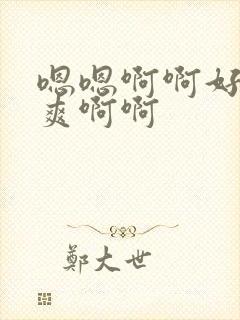 嗯嗯啊啊好
爽啊啊
鄭大世